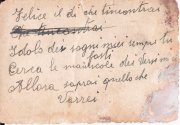 Felice il dì che t'incontrai
Idolo dei sogni miei sempre tu
fosti
Cerca le maiuscole dei versi miei
Allora saprai quello che
Vorrei